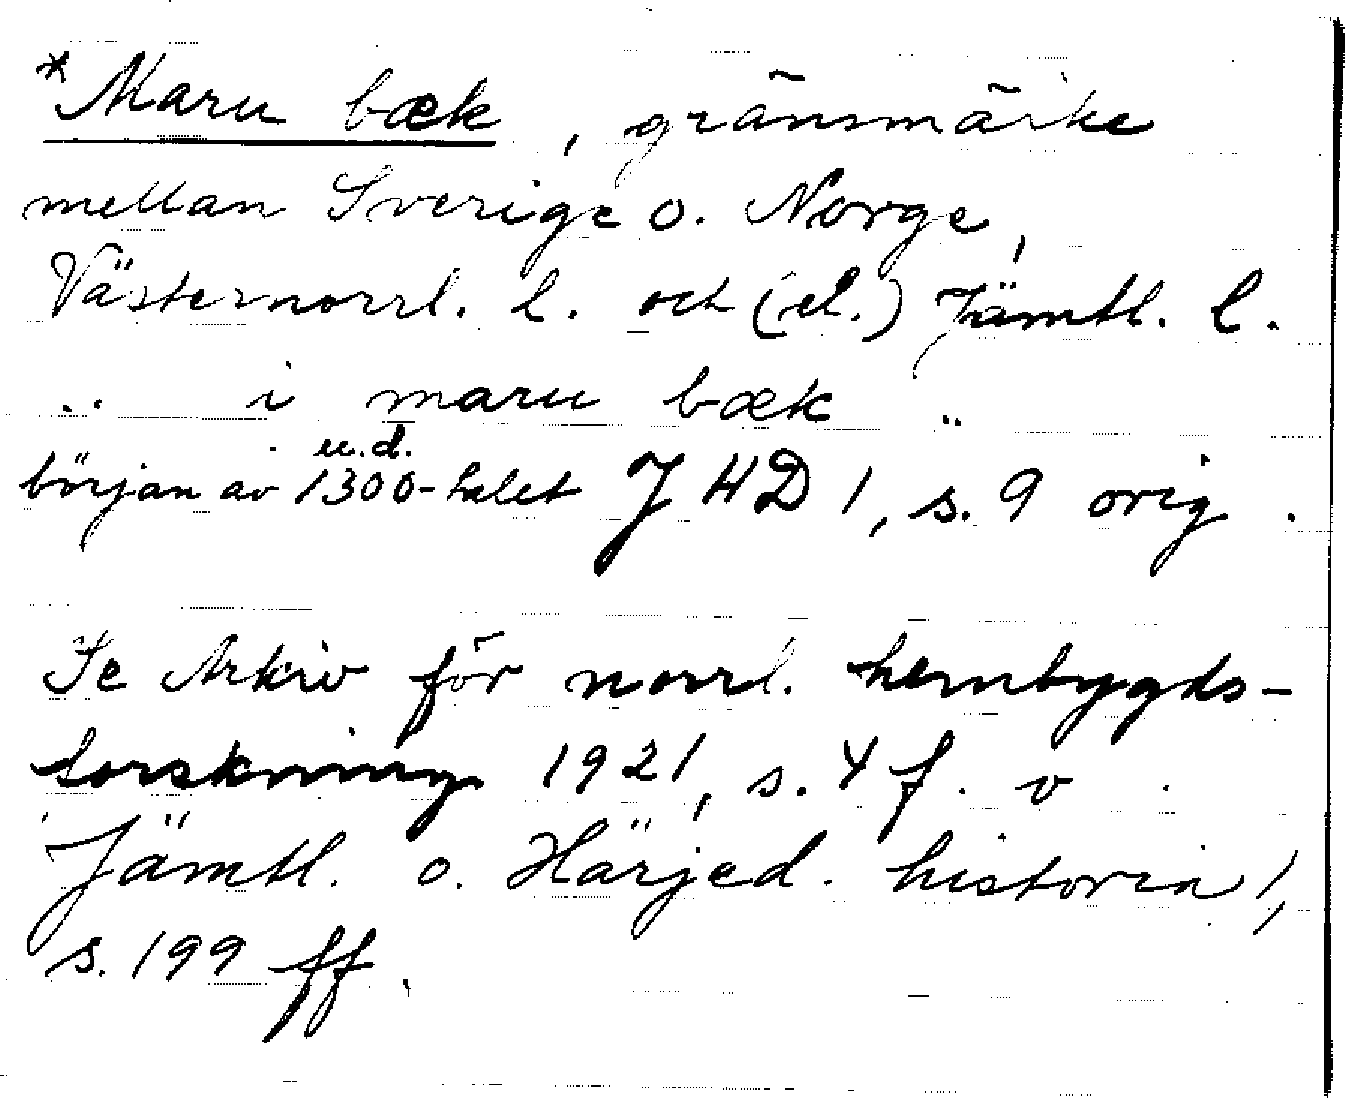 *Maru bæk, gränsmärke
mellan Sverige o. Norge,
Västernorrl. l. och (el.) Jämtl. l.
.. i maru bæk ..
u.d.
början av 1300-talet JHD 1, s. 9 orig.
Se Arkiv för norrl. hembygds-
forskning 1921, s. 4 f. o
Jämtl. o. Härjed. historia 1,
s. 199 ff.